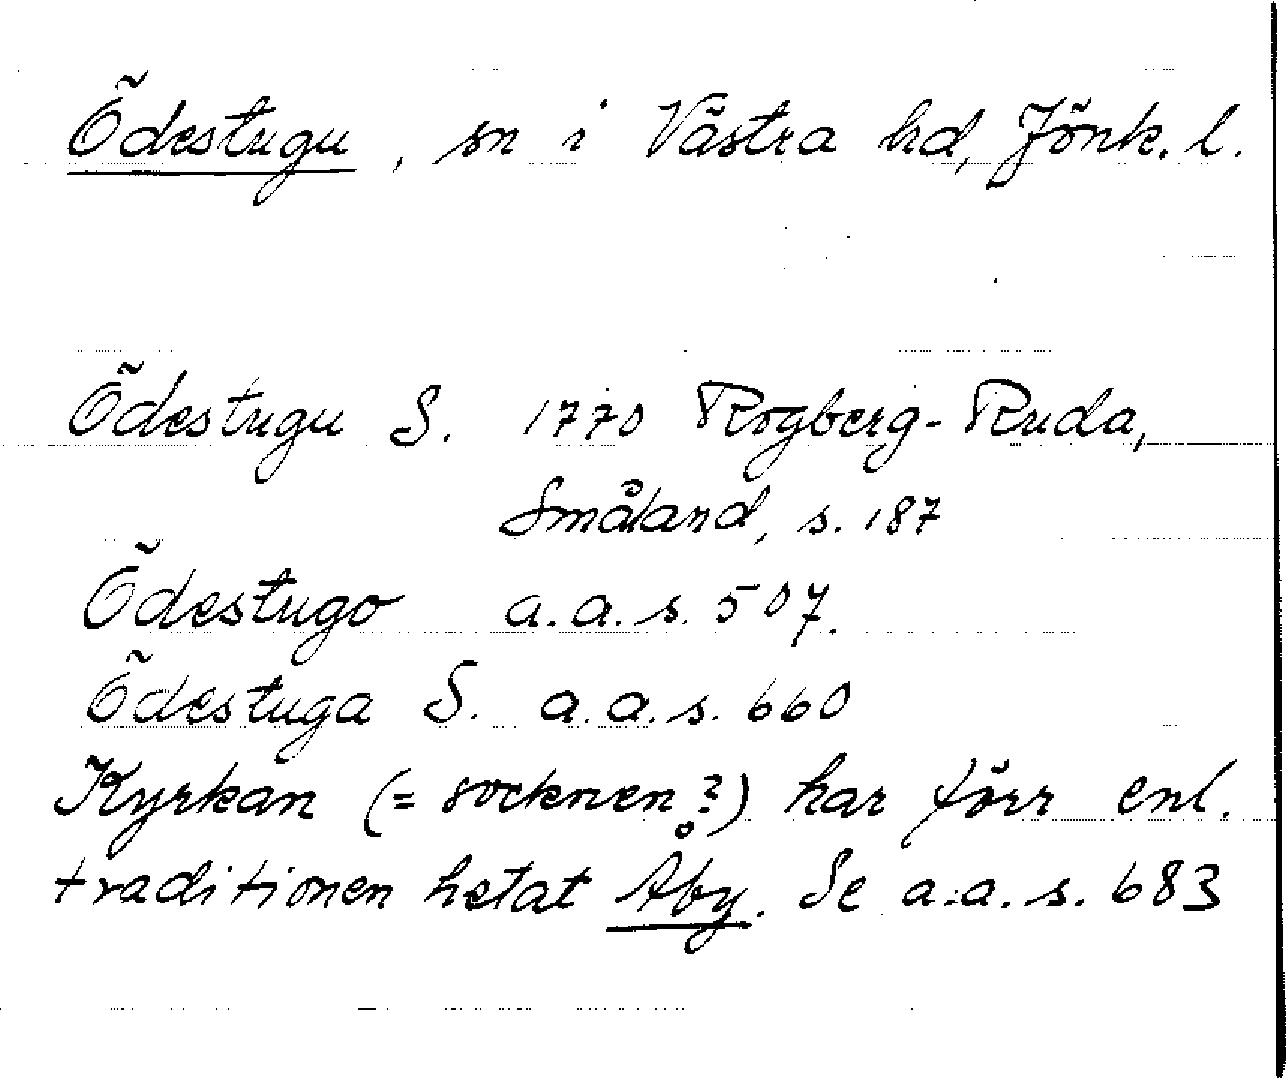 Ödestugu, sn i Västra hd, Jönk. l.
Ödestugu S. 1770 Rogberg-Ruda,
Småland, s. 187
Ödestugo a.a. s. 507.
Ödestuga S. a.a. s. 660
Kyrkan (= socknen?) har förr enl.
traditionen hetat Åby. Se a.a. s. 683